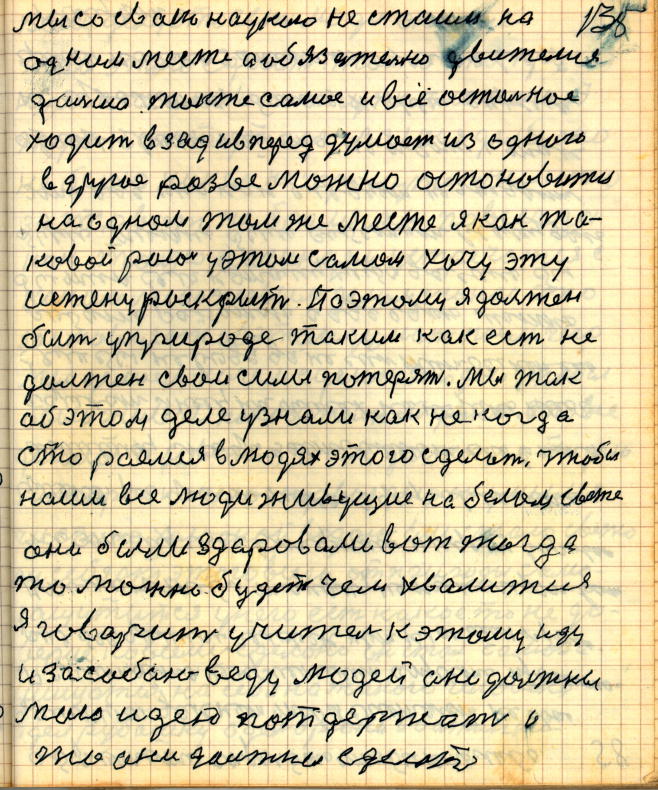 мы со сваю наукаю не стаим на 135
одним месте а обязателно двителия
далжно. такте самае и всё осталное
ходит в зад и вперед думает из одного
в другое розве можно остоновити
на одном том же месте я как та-
ковой ролю у этом самом хочу эту
истену роскрыт. Поэтому я долтен
быт у природе таким как ест не
долтен свои силы потерят. мы так
об этом деле узнали как не когда
старалися в людях этого сделат, чтобы
наши все люди живущие на белом свете
они были здаровали вот тогда
то можно будет чем хвалится
я говарит учител к этому иду
и за собою веду людей они должны
маю идею потдержат и
то они должны сделат